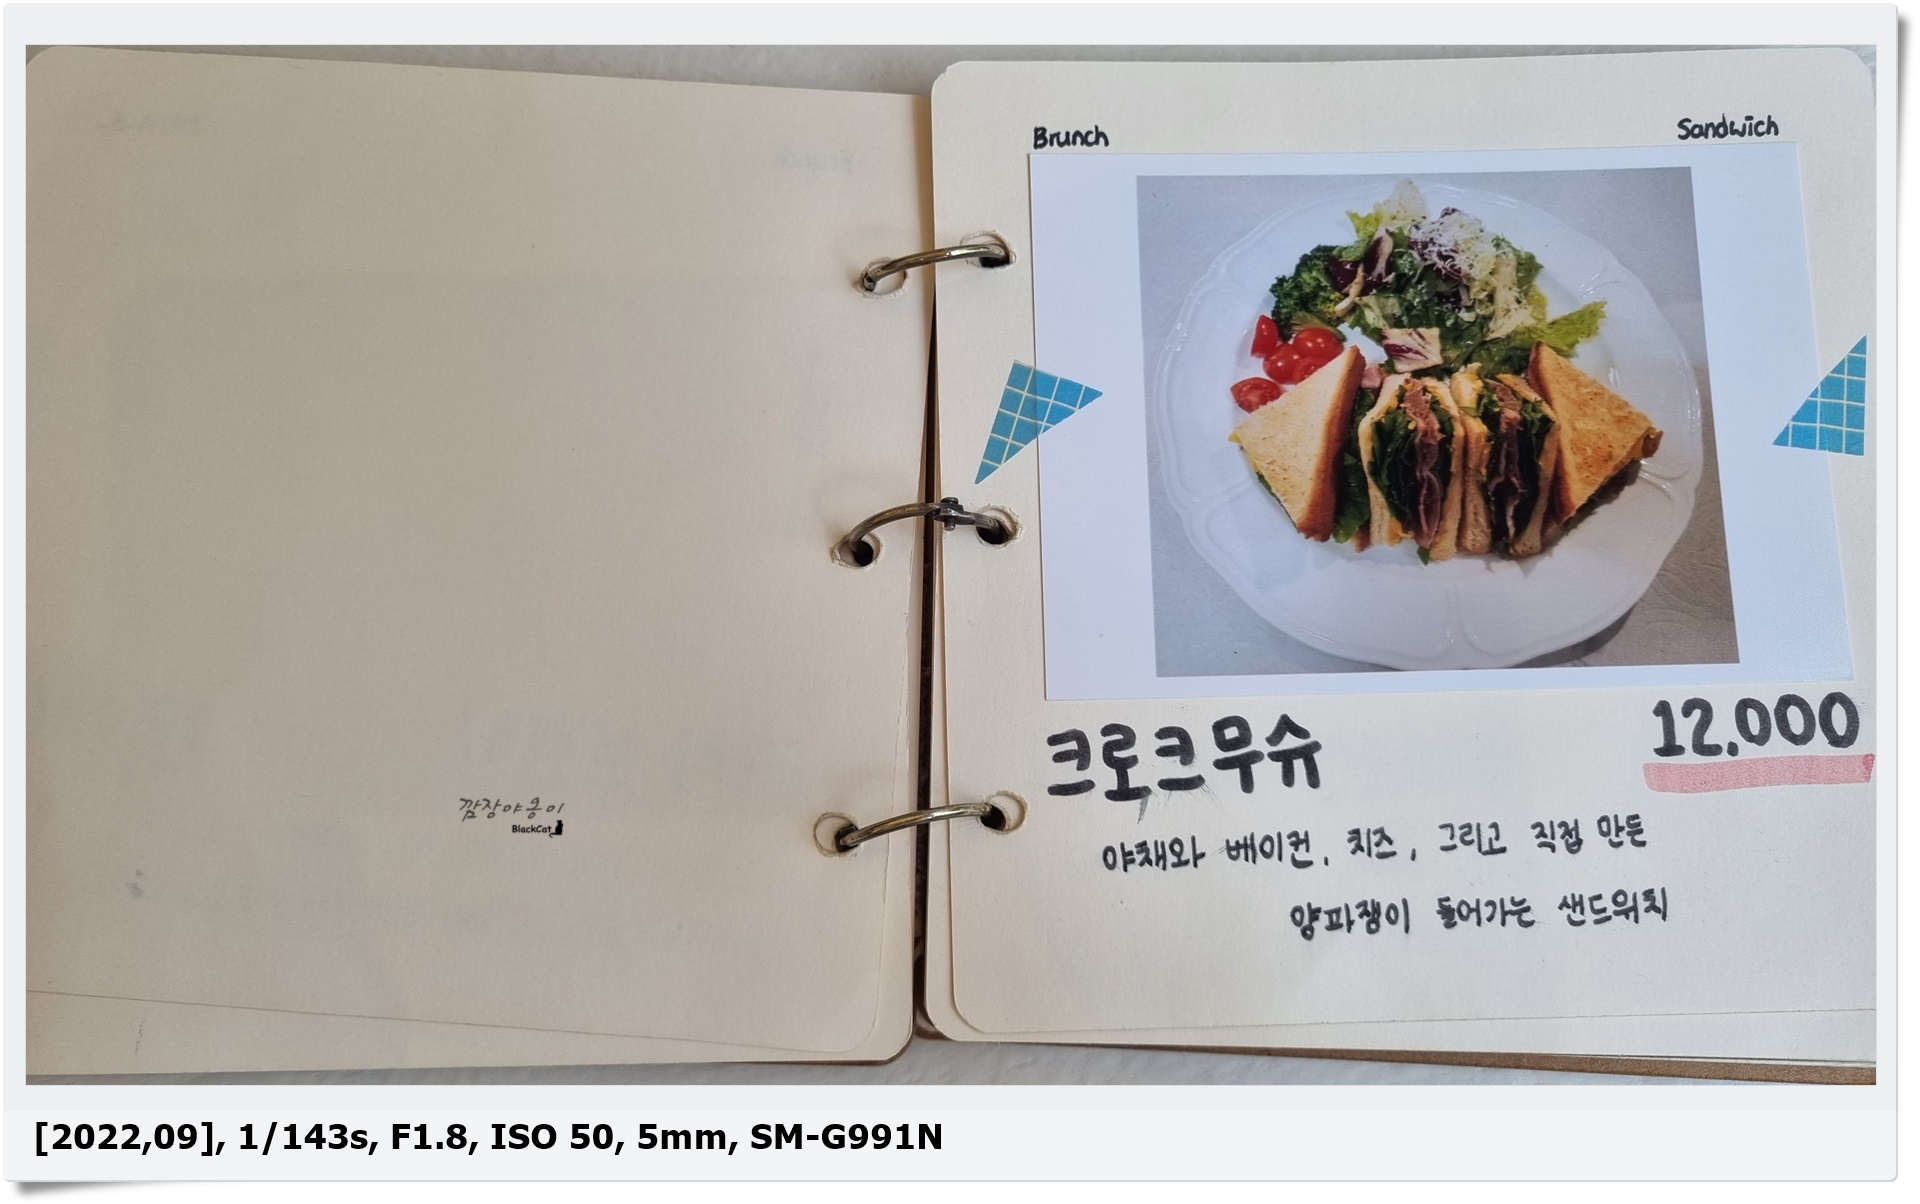 Brunch
Sandwich
크로크무슈
12,000
야채와 베이컨, 치즈, 그리고 직접 만든
양파쨍이 들어가는 샌드위치
깜장야옹이
BlackCat
[2022,09], 1/143s, F1.8, ISO 50, 5mm, SM-G991N